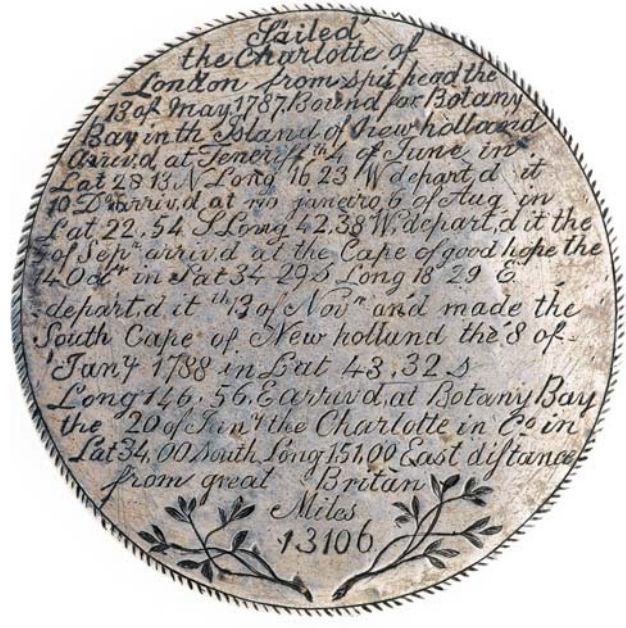 Sailed
the Charlotte of
London from spit head the
13 of May 1787. Bound for Botany
Bay in th Island of new holland
Arriv,d at Teneriff th 4 of June in
Lat 28 13 N Long 16 23 W depart,d it
10 Do arriv,d at rio janeiro 6 of Aug in
Lat 22.54 S Long 42.38 W, depart,d it the
4 of Sepr arriv,d at the Cape of good hope the
4 Octr in Lat 34 29 S Long 18 29 E
depart,d it th 13 of Novr and made the
South Cape of New holland the 8 of
Jany 1788 in Lat 43.32 S
Long 146.56. E arriv,d at Botany Bay
the 20 of Jany the Charlotte in Co in
Lat 34.00 South Long 151.00 East distance
from great Britan
Miles
13106